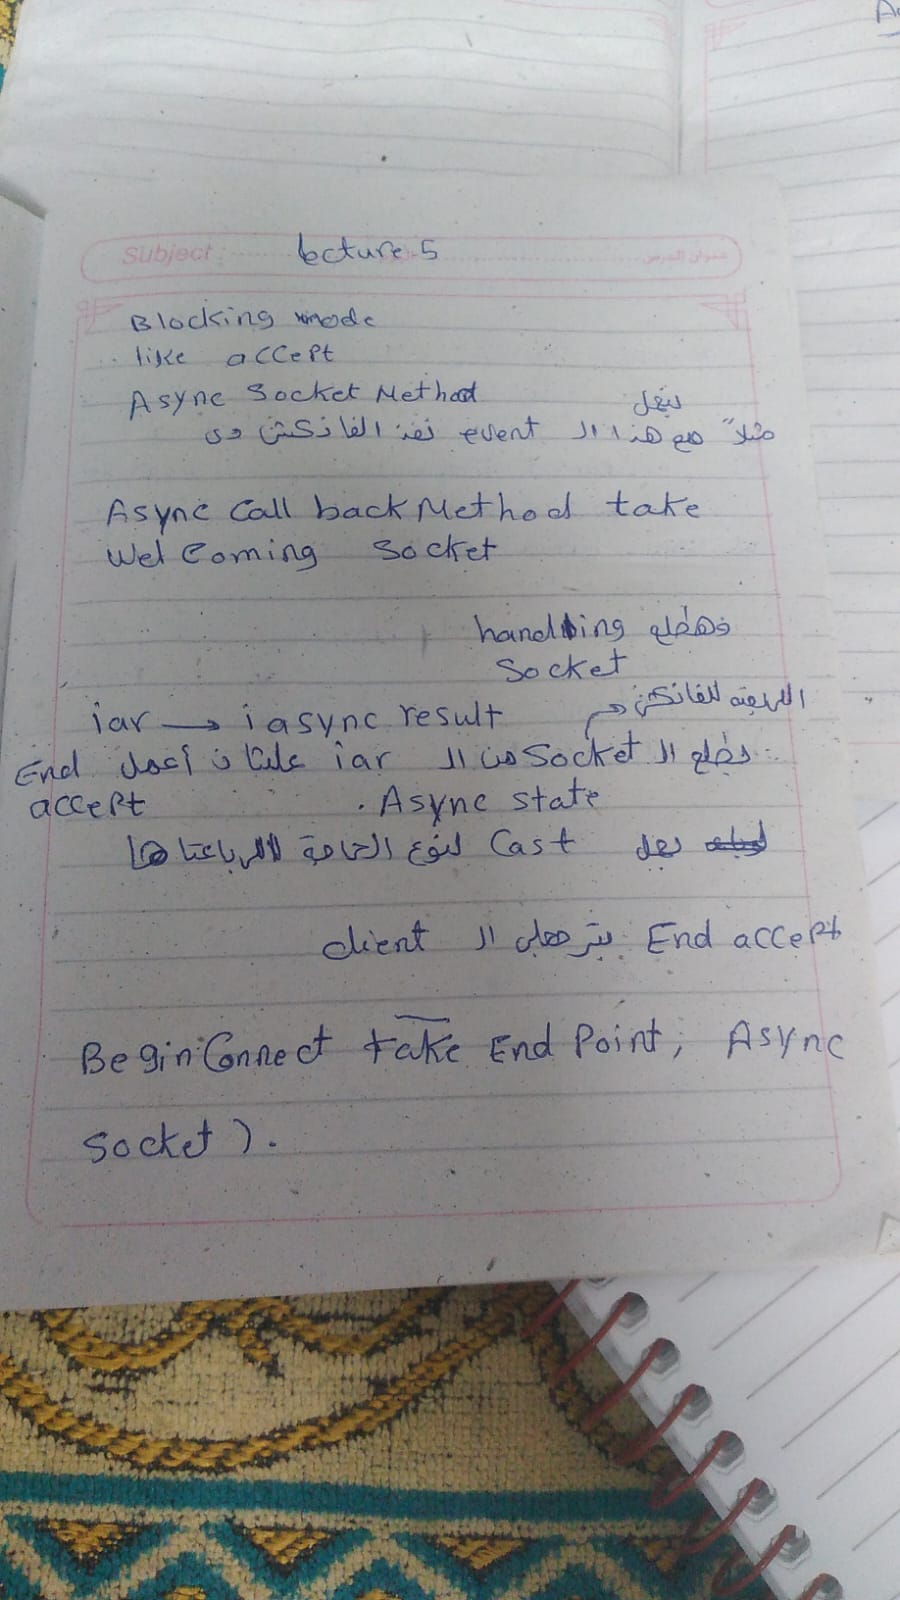 Subject lecture 5 عنوان الدرس
Blocking mode
like accept
Async Socket Method
بنقل
مثلاً مع هذا ال event نفذ الفانكشن دى
Async Call back Method take
Wel Coming Socket
وهطلع handling
Socket
iar → iasync result للفانكشن
ال Socket من ال iar علشان أعمل End
accept . Async state
Cast لنوع الحاجة
End accept بترجعلى ال client
Begin Connect take End Point, Async
Socket ).